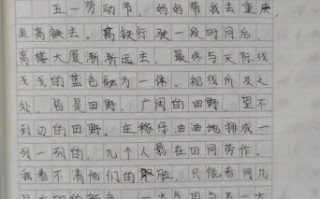 五一劳动节，妈妈带我去重庆，
坐高铁去。高铁行驶一段时间后，
高楼大厦渐渐远去。最终与天际线
的蓝色融为一体。视线所及之
处，皆是田野，广阔的田野，望不
到边的田野。在稼件油油地排成一
列一列的，几个人影在田间劳作。
我看不清他们的脸，只能看间几